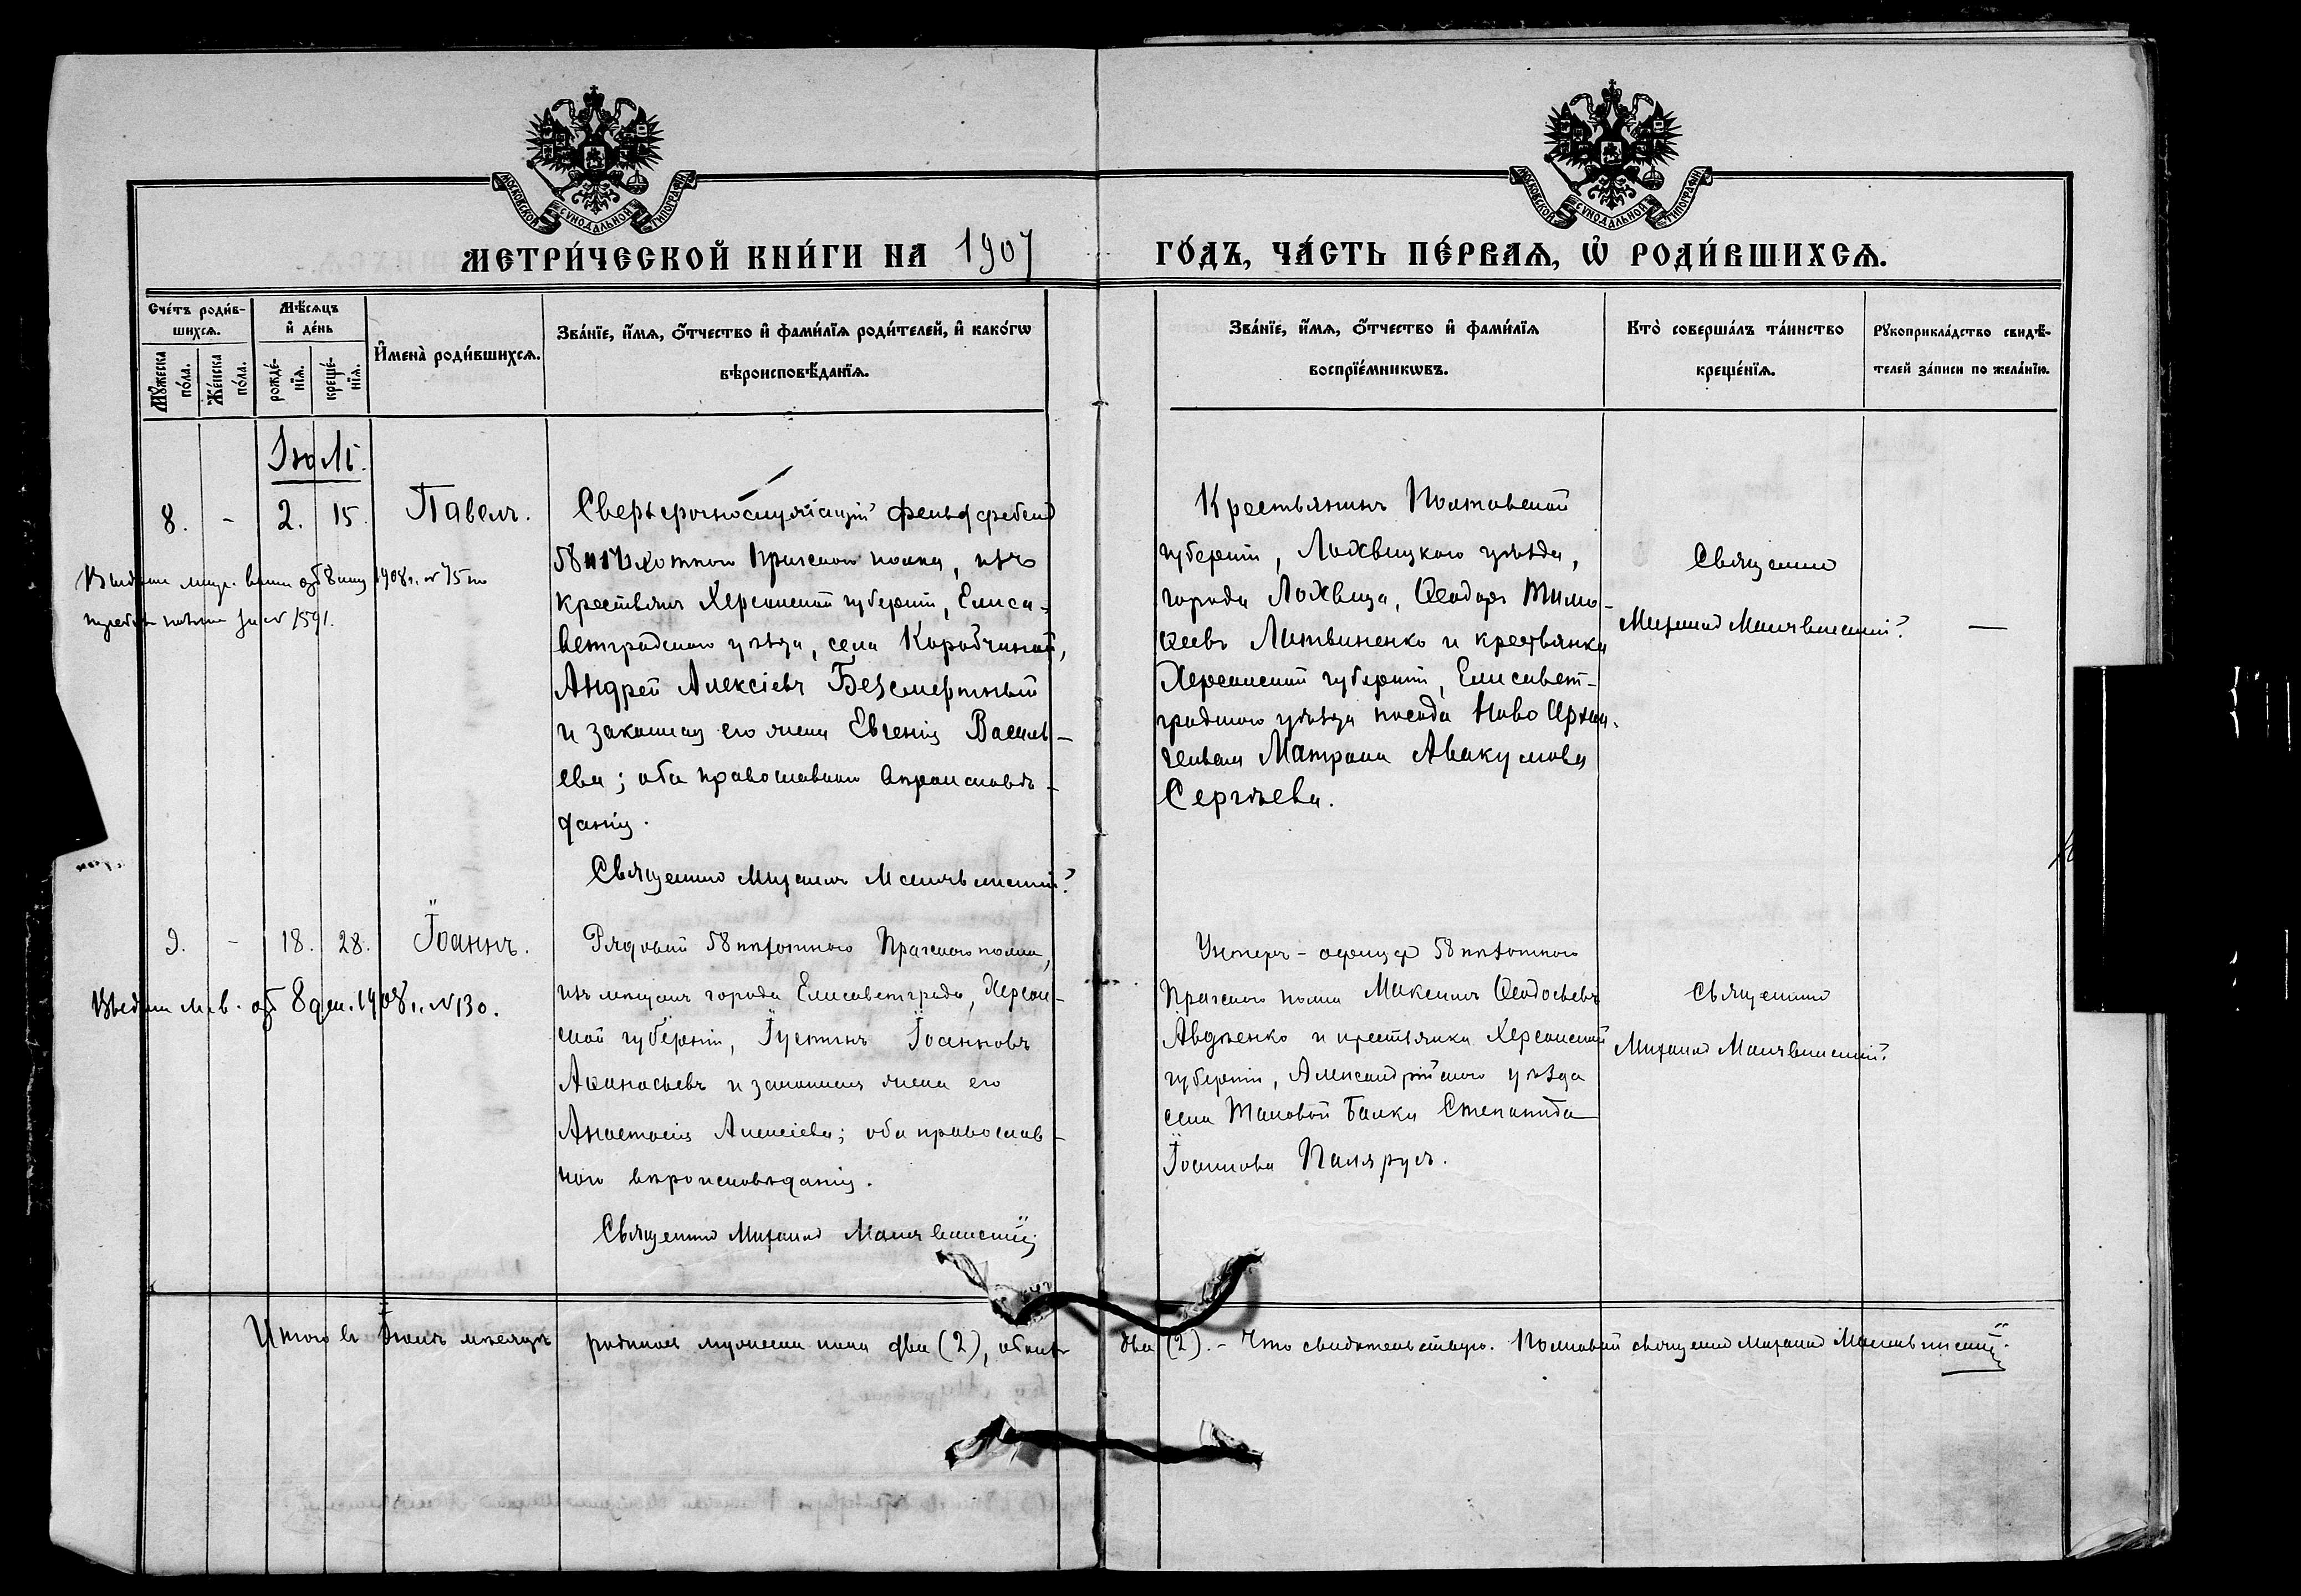 МОСКОВСКОЙ СѴНОДАЛЬНОЙ ТИПОГРАФІИ
МОСКОВСКОЙ СѴНОДАЛЬНОЙ ТИПОГРАФІИ
МЕТРИ́ЧЕСКОЙ КНИ́ГИ НА 1907
ГО́ДЪ, ЧА́СТЬ ПЕ́РВАѦ, Ѡ҆ РОДИ́ВШИХСѦ.
Сче́тъ роди́в-
шихсѧ.
Мꙋжеска по́ла.
Же́нска по́ла.
Мѣ́сѧцъ
и҆ де́нь
рожде́-
нїѧ.
креще́-
нїѧ.
И҆мена̀ роди́вшихсѧ.
Зва́нїе, и҆́мѧ, ѻ҆́тчество и҆ фами́лїѧ роди́телей, и҆ како́гѡ
вѣроисповѣ́данїѧ.
Зва́нїе, и҆́мѧ, ѻ҆́тчество и҆ фами́лїѧ
воспрїе́мникѡвъ.
Кто̀ соверша́лъ та́инство
креще́нїѧ.
Рꙋкоприкла́дство свидѣ́-
телей за́писи по жела́нїю.
Іюль.
8. - 2. 15. Павелъ.
Сверхсрочнослужащій фельдфебель
58 пѣхотнаго Пражскаго полка, изъ
крестьянъ Херсонской губерніи, Елиса-
ветградскаго уѣзда, села Коробчиной,
Андрей Алексіевъ Безсмертный
и законная его жена Евгенія Василь-
ева; оба православнаго вѣроисповѣ-
данія.
Священникъ Михаилъ
Крестьянинъ Полтавской
губерніи, Лохвицкаго уѣзда,
города Лохвица, Ѳеодоръ Тимо-
ѳеевъ Литвиненко и крестьянка
Херсонской губерніи, Елисавет-
градскаго уѣзда посада Ново Архан-
гельска Матрона Авакумова
Сергѣева.
Священникъ
Михаилъ
—
1908 г. № 75
№ 1591.
9. - 18. 28. Іоаннъ.
Рядовой 58 пѣхотнаго Пражскаго полка,
изъ мѣщанъ города Елисаветграда, Херсон-
ской губерніи, Іустинъ Іоанновъ
Аѳанасьевъ и законная жена его
Анастасія Алексіева; оба православ-
наго вѣроисповѣданія.
Священникъ Михаилъ
Унтеръ-офицеръ 58 пѣхотнаго
Пражскаго полка Максимъ Ѳеодосьевъ
Авдѣенко и крестьянка Херсонской
губерніи, Александрійскаго уѣзда
села Балки Степанида
Іоаннова
Священникъ
Михаилъ
8 1908 г. № 130.
Итого въ Іюлѣ мѣсяцѣ родилось мужеска пола два (2), обоего два (2). - Что свидѣтельствую. Полковой священникъ Михаилъ